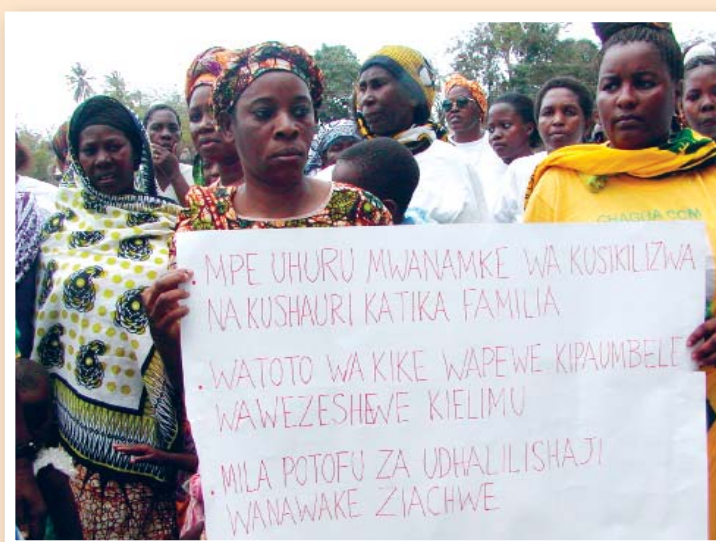 . MPE UHURU MWANAMKE WA KUSIKILIZWA
NA KUSHAURI KATIKA FAMILIA
. WATOTO WA KIKE WAPEWE KIPAUMBELE
WAWEZESHEWE KIELIMU
. MILA POTOFU ZA UDHALILISHAJI
WANAWAKE ZIACHWE
CHAGUA CCM